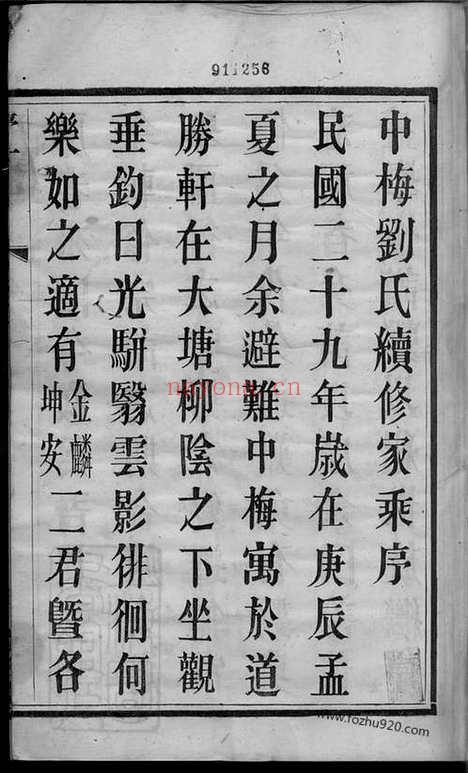 911256
中梅劉氏續修家乘序
民國二十九年歲在庚辰孟
夏之月余避難中梅寓於道
勝軒在大塘柳陰之下坐觀
垂鈞日光駢翳雲影徘徊何
樂如之適有金麟坤安二君暨各
nayona.cn
www.fozhu920.com